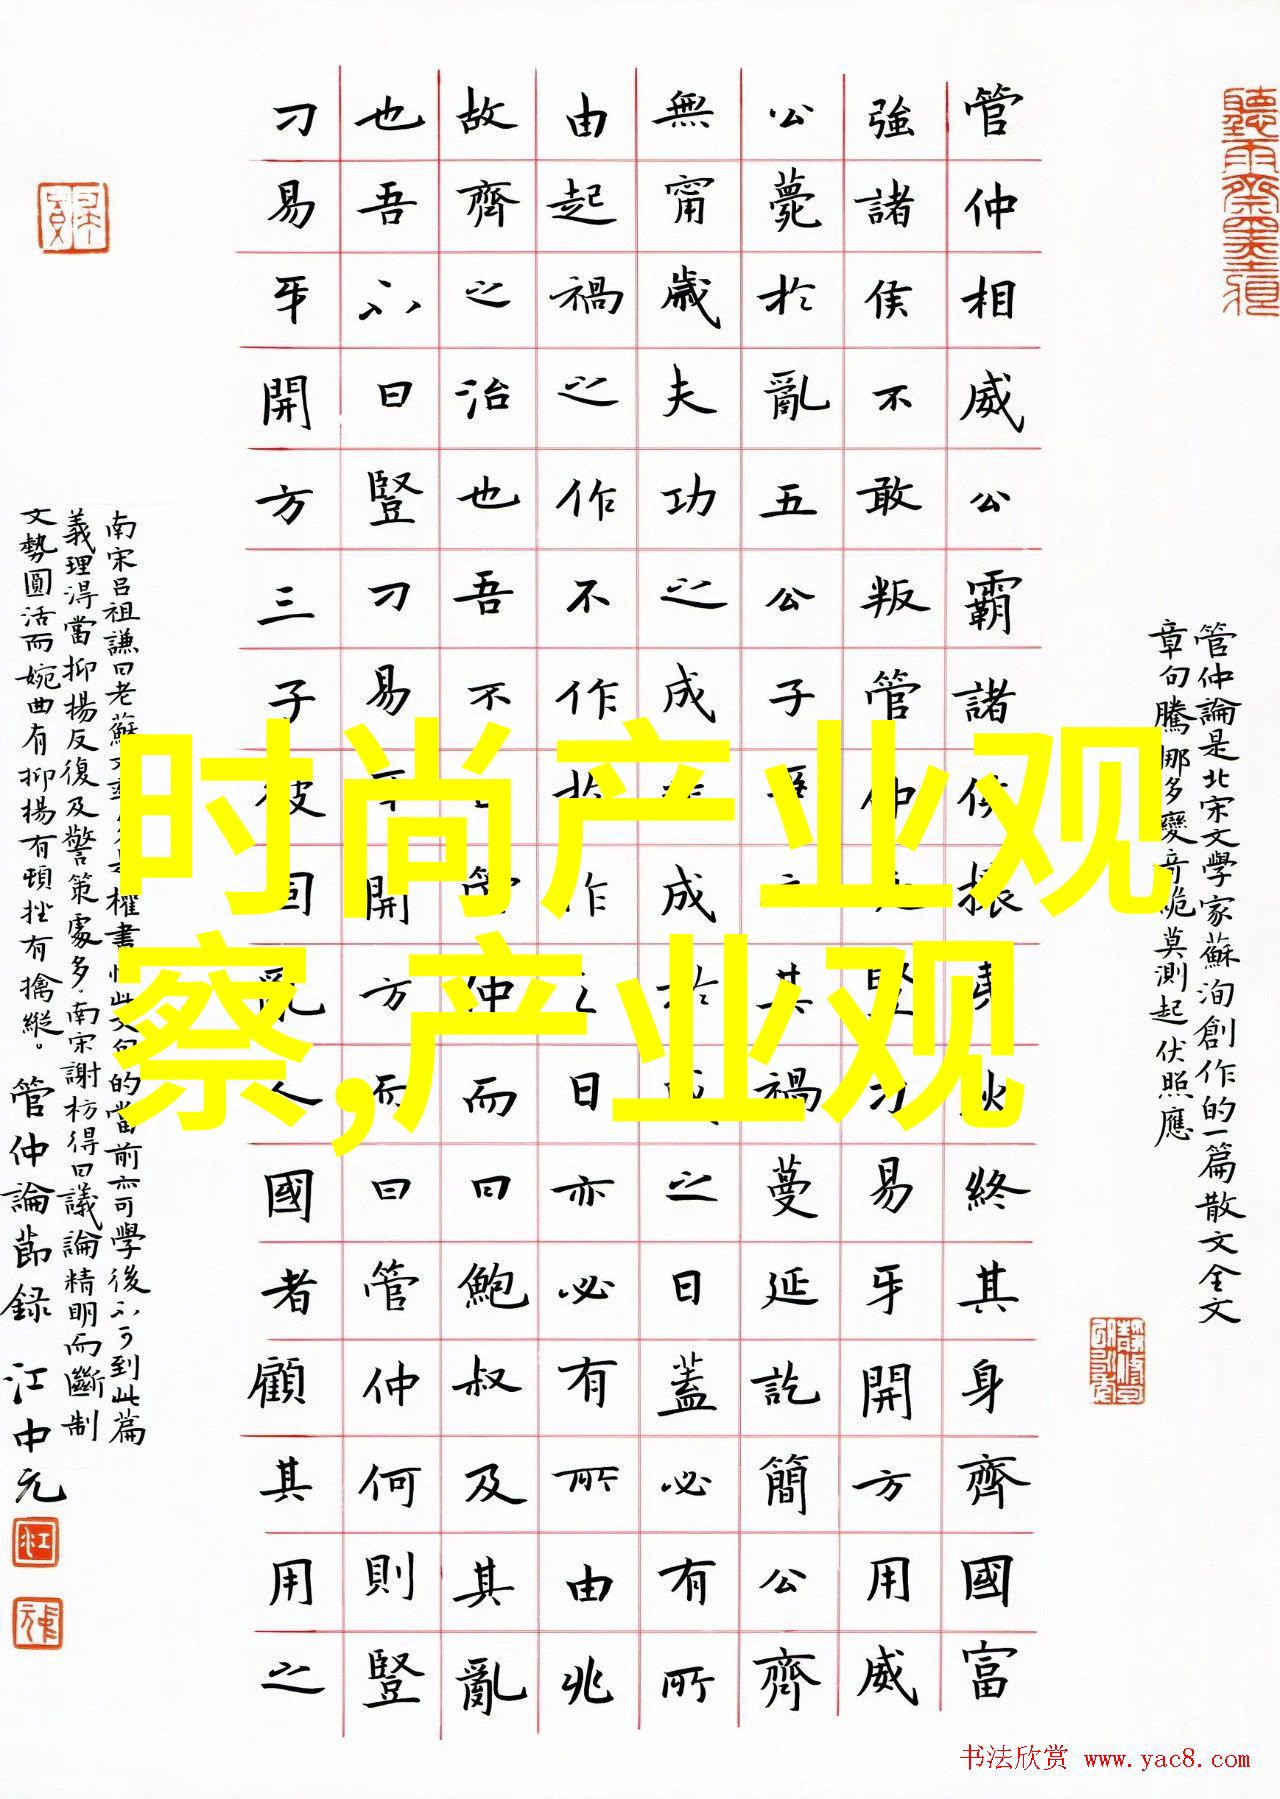 聽雨齋
管仲論是北宋文學家蘇洵創作的一篇散文全文
章句騰挪多變奇詭莫測起伏照應
管仲相威公霸諸侯攘夷狄終其身齊國富
強諸侯不敢叛管仲死豎刁易牙開方用威
公薨於亂五公子爭立其禍蔓延訖簡公齊
無甯歲夫功之成非成於成之日蓋必有所
由起禍之作不作於作之日亦必有所由兆
故齊之治也吾不曰管仲而曰鮑叔及其亂
也吾不曰豎刁易牙開方而曰管仲何則豎
刁易牙開方三子彼固亂人國者顧其用之
南宋呂祖謙曰老蘇文權書惟此文句的當前亦可學後不可到此篇
義理得當抑揚反復及警策處多南宋謝枋得曰議論精明而斷制
文勢圓活而婉曲有抑揚有頓挫有擒縱。管仲論節錄 江中元
江
时尚产业观
察,产业观
书法欣赏 www.yac8.com